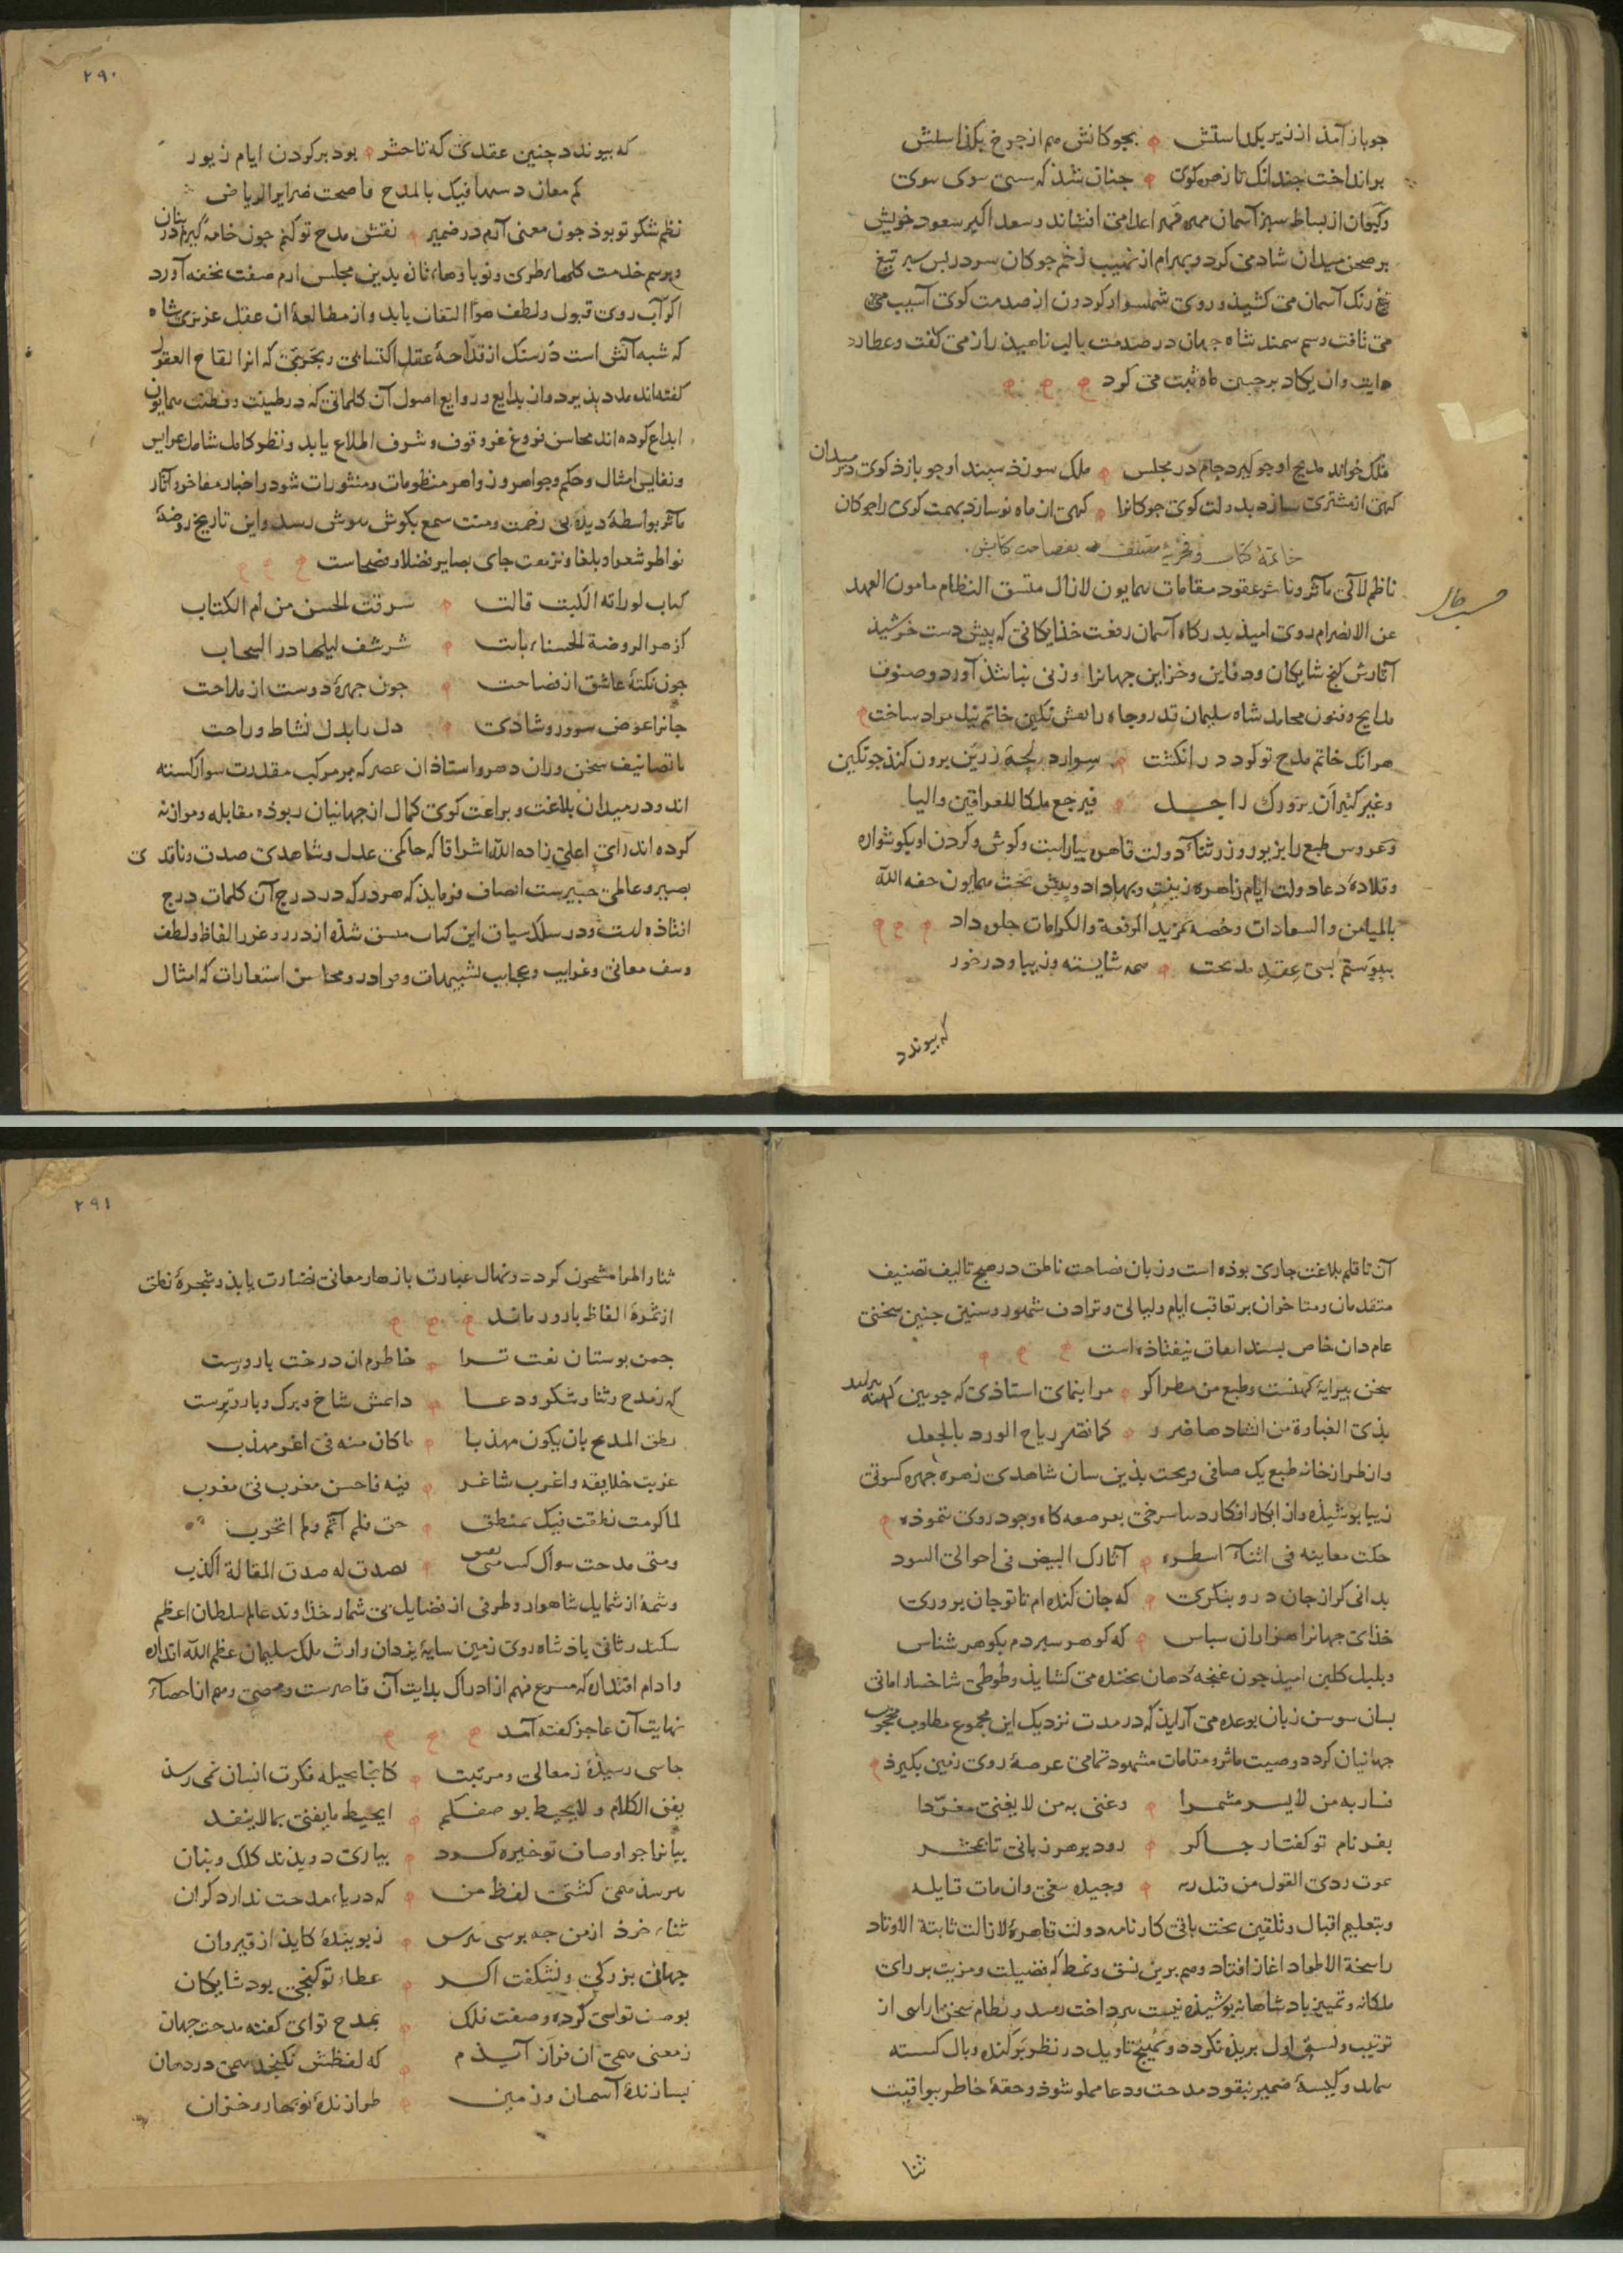 جو باز آمد از زیر یکدا سلش بجوکانش هم از چرخ
بر انداخت جندانک تا زهره کوی جنان شذ که سوی سوی
وکیوان از بساط سبز آسمان مهره قهر اعدا می افشاند و سعد اکبر سعود خویش
بر صحن میدان شادمی کرد و بهرام از نهیب زخم جوکان سر در بس سبر تیغ
تیغ رنک آسمان می کشیذ و روی شهسوار کردون از صدمت کوی آسیب می
می تافت و سم سمند شاه جهان در صدمت با لب ناهید راز می کفت و عطارد
وان یکاد بر جبین ماه ثبت می کرد
ملک خواند مدیح او جو کیرد جام در مجلس ملک سوزذ سپند او جو بازذ کوی در میدان
کهی از مشتری سازد بدولت کوی جوکانرا کهی از ماه نو سازد بهمت کوی را جوکان
خاتمهٔ کتاب و فخریهٔ مصنف بفصاحت کتابش
حسب حال
ناظم لآلی مآثر و ناشر عقود مقامات همایون لا زال متسق النظام مامون العهد
عن الانصرام روی امیذ بدرکاه آسمان رفعت خذایکانی که بیش دست خرشیذ
آثارش کنج شایکان و دفاین و خزاین جهانرا وزنی نباشذ آورد و صنوف
مدایح و فنون محامد شاه سلیمان قدر و جاه را نقش نکین خاتم نیل مراد ساخت
هر آنک خاتم مدح تو کرد در انکشت سر از دریجهٔ زرین برون کند جو نکین
وغیر کثیر ان یزورک راجل فیرجع ملکا للعراقین والیا
وعروس طبع را بزیور و زر ثناء دولت قاهره بیاراست و کوش و کردن او بکوشواره
وقلادهٔ دعاء دولت ایام زاهره زینت و بها داد و بیش تخت همایون حفه الله
بالمیامن والسعادات وخصه بمزید الرفعة والکرامات جلوه داد
ببیوستم بسی عقد مدیحت همه شایسته و زیبا و در خور
که بیوندد
۲۹۰
که بیوندد جنین عقدی که تا حشر بود بر کردن ایام زیور
کم معان فیک بالمدح فاصحت ضرایر الریاض
نظم شکر تو بوذ جون معنی آرم در ضمیر نقش مدح تو کنم جون خامه کیرم در بنان
وبرسم خدمت کلهاء طری و نوباوهاء تازه بدین مجلس ارم صفت تحفه آورد
اکر آب روی قبول و لطف هوا التفات یابد و از مطالعهٔ آن عقل عزیزی شاه
که شبه آتش است در سنک از قداحهٔ عقل اکتسابی و تجربتی که آنرا لقاح العقول
کفته اند مدد بذیرد و از بدایع و روایع اصول آن کلماتی که در طینت و فطنت همایون
ابداع کرده اند محاسن فروغ غرر وقوف و شرف اطلاع یابد و نظر کامل شامل عرایس
ونفایس امثال و حکم و جواهر و زواهر منظومات و منثورات شود و اخبار مفاخر و آثار
مآثر بواسطهٔ دیده بی زحمت و منت سمع بکوش هوش رسد و این تاریخ روضهٔ
نواظر شعرا و بلغا و نزهت جای بصایر فضلا و فصحاست
کتاب لو راته الکتب قالت سرقت الحسن من ام الکتاب
کزهر الروضة الحسناء باتت در السحاب
جون نکتهٔ عاشق از فصاحت جون جهرهٔ دوست از ملاحت
جانرا عوض سرور و شادی دل را بدل نشاط و راحت
با تصانیف سخن وران دهر و استاذان عصر که بر مرکب مقدرت سوار کشته
اند و در میدان بلاغت و براعت کوی کمال از جهانیان ربوذه مقابله و موازنه
کرده اند رای اعلی زاده الله اشراقا که حاکمی عدل و شاهدی صدق و ناقدی
بصیر و عالمی خبیرست انصاف فرمایذ که هر در که در درج آن کلمات درج
افتاذه است و در سلک سیاق این کتاب منسق شذه از درر و غرر الفاظ و لطف
وصف معانی و غرایب و عجایب تشبیهات و موارد و محاسن استعارات که امثال
آن تا قلم بلاغت جاری بوذه است و زبان فصاحت ناطق در هیج تالیف تصنیف
متقدمان و متاخران بر تعاقب ایام و لیالی و ترادف شهور و سنین جنین سخنی
عام دان خاص بسند اتفاق نیفتاذه است
سخن بیرایهٔ کهنست و طبع من مطرا کر مرا بنمای استاذی که جوبین کهنه
بذی الغباوة من انشادها ضرر کما تضر ریاح الورد بالجعل
واز طرازخانه طبع یک صافی بذین سان شاهدی زهره جهره کسوتی
زیبا بوشیذه و از ابکار افکار سخن بعرصه کاه وجود روی ننموذه
حکت معانیه فی اثناء اسطره آثارک البیض فی احوالی السود
بدانی کر از جان درو بنکری که جان کنده ام تا تو جان بروری
خذای جهانرا هزاران سباس که کوهر سبردم بکوهر شناس
وبلبل کلبن امیذ جون غنجه دهان بخنده می کشایذ و طوطی شاخسار امانی
بسان سوسن زبان بوعده می آرایذ که در مدت نزدیک این مجموع مطلوب محبوب
جهانیان کردد و صیت مآثر و مقامات مشهود تمامی عرصهٔ روی زمین بکیرذ
فسار به من لا یسیر مشمرا وغنی به من لا یغنی مغردا
بفر نام تو کفتار جاکر روذ بر هر زبانی تا بمحشر
یموت ردی القول من قبل ربه وجیده یبقی وان مات قایله
وبتعلیم اقبال و تلقین بخت باقی کارنامه دولت قاهره لا زالت ثابتة الاوتاد
راسخة الاطواد آغاز افتاد و هم برین نسق و نمط که فضیلت و مزیت بر رای
ملکانه و تمییز بادشاهانه بوشیذه نیست برداخت رسد و نظام سخن آرایی از
ترتیب و نسق اول بریذه نکردد و تاویل در نظر برکنده و بال کسسته
نماید و کیسهٔ ضمیر بنقود مدحت و دعا مملو شوذ و حقهٔ خاطر بیواقیت
ثنا
۲۹۱
ثنا و اطرا مشحون کردد و نهال عبارت بازهار معانی نضارت یابذ و شجرهٔ نطق
از ثمرهٔ الفاظ بارور ماند
جمن بوستان نعت ترا خاطرم آن درخت بارورست
که ز مدح و ثنا و شکر و دعا دایمش شاخ و برک و بار و برست
نطق المدیح بان یکون مهذبا ما کان منه فی اغر مهذب
عزبت خلایقه و اغرب شاعر فیه فاحسن مغرب فی مغرب
لما کرمت نطقت فیک بمنطق حق فلم آثم ولم اتحوب
ومتی مدحت سواک کنت متی یضق بصدق له صدق المقالة اکذب
وشمهٔ از شمایل شاهوار و طرفی از فضایل بی شمار خذاوند عالم سلطان اعظم
سکندر ثانی باذشاه روی زمین سایهٔ یزدان وارث ملک سلیمان عظم الله اقداره
وادام اقتداره که مسرع فهم از ادراک بدایت آن قاصرست و محصی وهم از احصاء
نهایت آن عاجز کفته آمد
جایی رسیذهٔ ز معالی و مرتبت کانجا بحیله فکرت انسان نمی رسد
یفنی الکلام ولا یحیط بوصفکم ایحیط ما یفنی بما لا ینفد
بیانرا جو اوصاف تو خیره کرد بیاری دویذند کلک و بنان
بترسذ همی کشتی لفظ من که دریاء مدحت ندارد کران
ثناء خرد از من جه برسی ببرس ز بویندهٔ کایذ از قیروان
جهانی بزرکی و نشکفت اکر عطاء تو کنجی بود شایکان
بوصف توایی کرده وصفت فلک بمدح توای کفته مدحت جهان
ز معنی همی آن فراز آیذم که لفظش نکنجد همی در دهان
بسازندهٔ آسمان و زمین طرازندهٔ نوبهار و خزان